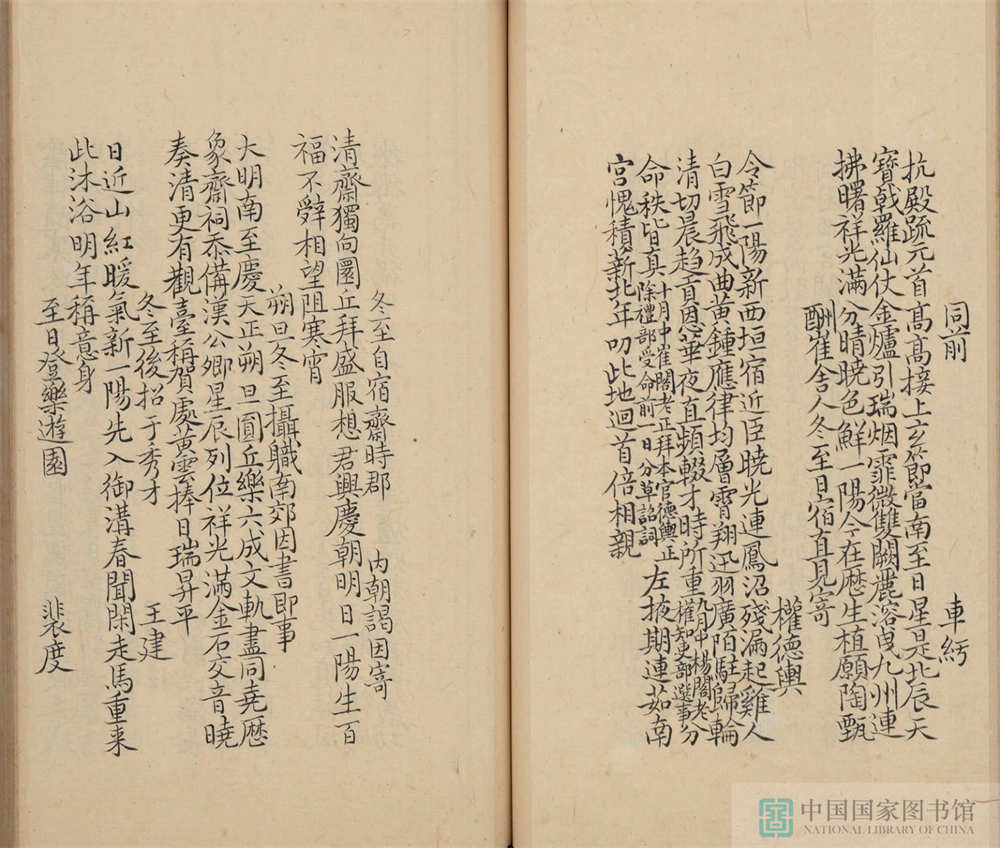 同前 車䋖
抗殿疏元首高高接上玄節當南至日星是北辰天
寶戟羅仙仗金爐引瑞烟霏微雙闕麗溶曳九州連
拂曙祥光滿分晴曉色鮮一陽今在歷生植願陶甄
酬崔舍人冬至日宿直見寄
權德輿
令節一陽新西垣宿近臣曉光連鳳沼殘漏起雞人
白雪飛成曲黄鍾應律均層霄翔迅羽廣陌駐歸輪
清切晨趨貴恩華夜直頻輟才時所重九月中楊閣老分權知吏部選事分
命秩皆真十月中崔閣老正拜本官德輿正除禮部受命前一日分草詔詞左掖期連茹南
宫愧積薪北年叨此地迴首倍相親
冬至自宿齋時郡 内朝謁因寄
清齋獨向圜丘拜盛服想君興慶朝明日一陽生百
福不辤相望阻寒宵
朔旦冬至攝職南郊因書即事
大明南至慶天正朔旦圓丘樂六成文軌盡同堯歷
象齋祠忝備漢公卿星辰列位祥光滿金石交音曉
奏清更有觀臺稱賀處黄雲捧日瑞昇平
冬至後招于秀才 王建
日近山紅暖氣新一陽先入御溝春聞閑走馬重来
此沐浴明年稱意身
至日登樂遊園 裴度
中国国家图书馆
NATIONAL LIBRARY OF CHINA